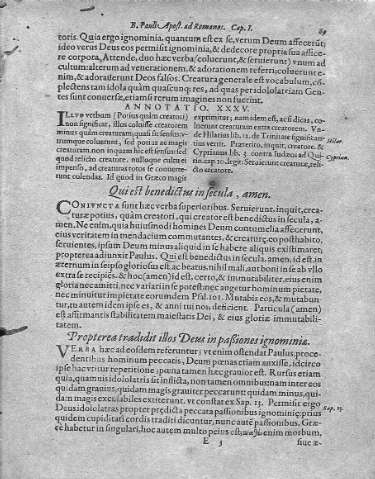 B. Pauli Apost. ad Romanos. Cap. I. 69
toris. Quia ergo ignominia, quantum est ex se, verum Deum affecerūt;
ideo verus Deus eos permisit ignominia, & dedecore propria sua affice-
re corpora. Attende, duo hæc verba (coluerunt, & seruierunt) vnum ad
cultum: alterum ad venerationem, & adorationem referri; coluerunt e-
nim, & adorauerunt Deos falsos. Creatura generale est vocabulum, cō-
plectens tam idola quàm quascunque res, ad quas per idololatriam Gen-
tes sunt conuersæ, etiamsi rerum imagines non fuerint.
ANNOTATIO. XXXV.
ILLVD verbum (Potius quàm creatori)
non significat, illos coluisse creatorem
minus quàm creaturam, quasi
utrumque coluerunt, sed potius
creaturam, non in quàm hic est sensus
quod relicto creatore, nulloque cultu ei
impenso, ad creaturas totos se conuerte-
runt colendas. Id quod in Græco magis
exprimitur; nam idem est, ac si dicas, co-
luerunt creaturam extra creatorem. Vn-
de Hilarius lib. 12. de Trinitate
tius vertit. Præterito, inquit, creatore, &
Cyprianus lib. 3. contra Iudæos ad Qui-
rin. cap. 10. legit. Seruierunt creaturæ, reli-
cto creatore.
Hilar.
Cyprian.
Qui est benedictus in secula, amen.
CONIVNCTA sunt hæc verba superioribus. Seruierunt, inquit, crea-
turæ potius, quàm creatori, qui creator est benedictus in secula, a-
men. Ne enim, quia huiusmodi homines Deum contumelia affecerunt,
eius veritatem in mendacium commutantes, & creaturę, eo posthabito,
seruientes, ipsum Deum minus aliquid in se habere aliquis existimaret,
propterea adiunxit Paulus. Qui est benedictus in secula, amen. id est in
æternum in seipso gloriosus est, ac beatus, nihil mali, aut boni in se ab illo
extra se recipiēs. & hoc (amen) id est. certò, & immutabiliter, eius enim
gloria nec amitti, nec variari in se potest: nec augetur hominum pietate,
nec minuitur impietate eorundem Psal. 101. Mutabis eos, & mutabun-
tur, tu autem idem ipse es, & anni tui non deficient. Particula (amen)
est affirmantis stabilitatem maiestatis Dei, & eius gloriæ immutabili-
tatem.
Propterea tradidit illos Deus in passiones ignominia.
VERBA hæc ad eosdem referuntur; vt enim ostendat Paulus, præce-
dentibus hominum peccatis, Deum pœnas etiam auxisse, idcirco
ipse hac vtitur repetitione; pœna tamen hæc grauior est. Rursus etiam
quia, quamuis idololatris sit inflicta, non tamen omnibus; nam inter eos
quidam grauius, quidam magis grauiter peccarunt: quidam minus, qui-
dam magis excusabiles extiterunt. vt constat ex Sap. 13. Permisit ergo
Deus idololatras propter prædicta peccata passionibus ignominię; prius
quidem cupiditati cordis traditi dicuntur, nunc autē passionibus. Græ-
ce habetur in singulari, hoc autem multo peius est, enim morbum,
Sap. 13.
E 3
siue æ-